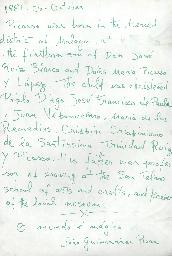 1881. 25. October
Picasso was born in the Merced
district of Malaga at
the firstborn son of Don José
Ruiz Blasco and Doña Maria Picasso
y López. The child was christened
Pablo Diego José Francisco de Paula
Juan Nepomuceno, Maria de los
Remedios, Crispin Crispiniano
de la Santissima Trinidad Ruiz
y Picasso. His father was profes-
sor of drawing at the San Telmo
school of arts and crafts, and
of the local museum.
João Guimarães Rosa